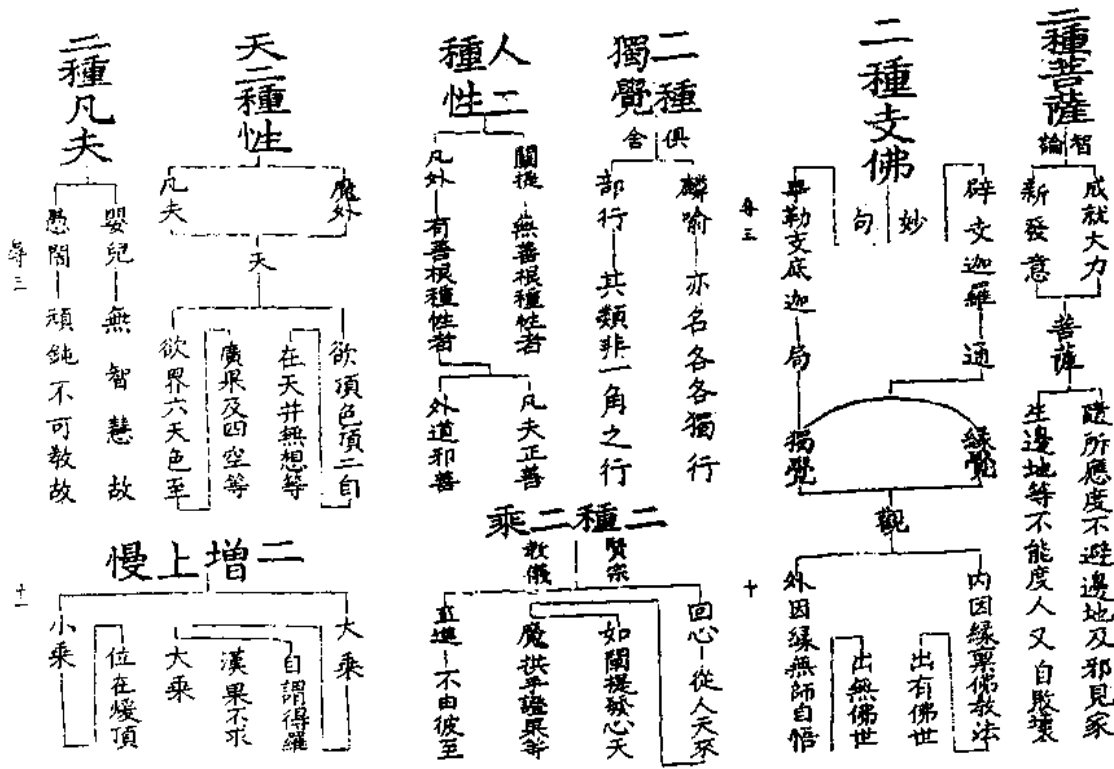 二種菩薩
智論
成就大力
新發意
菩薩
隨所應度不避邊地及邪見家
生邊地等不能度人又自敗壞
二種支佛
妙句
辟支迦羅
通
畢勒支底迦
局
緣覺
獨覺
觀
內因緣稟佛教法
出有佛世
出無佛世
外因緣無師自悟
尋三
十
二種獨覺
俱舍
麟喻
亦名各各獨行
部行
其類非一角之行
人二種性
闡提
無善根種性者
凡外
有善根種性者
凡夫正善
外道邪善
二種二乘
賢宗
教儀
回心
從人天來
如闡提發心天
魔拱手證果等
並進
不由彼至
天二種性
魔外
凡夫
天
欲頂色頂二自
在天并無想等
廣果及四空等
欲界六天色至
二種凡夫
嬰兒
無智慧故
愚闇
頑鈍不可教故
尋三
二增上慢
大乘
自謂得羅
漢果不求
大乘
位在煖頂
小乘
十一